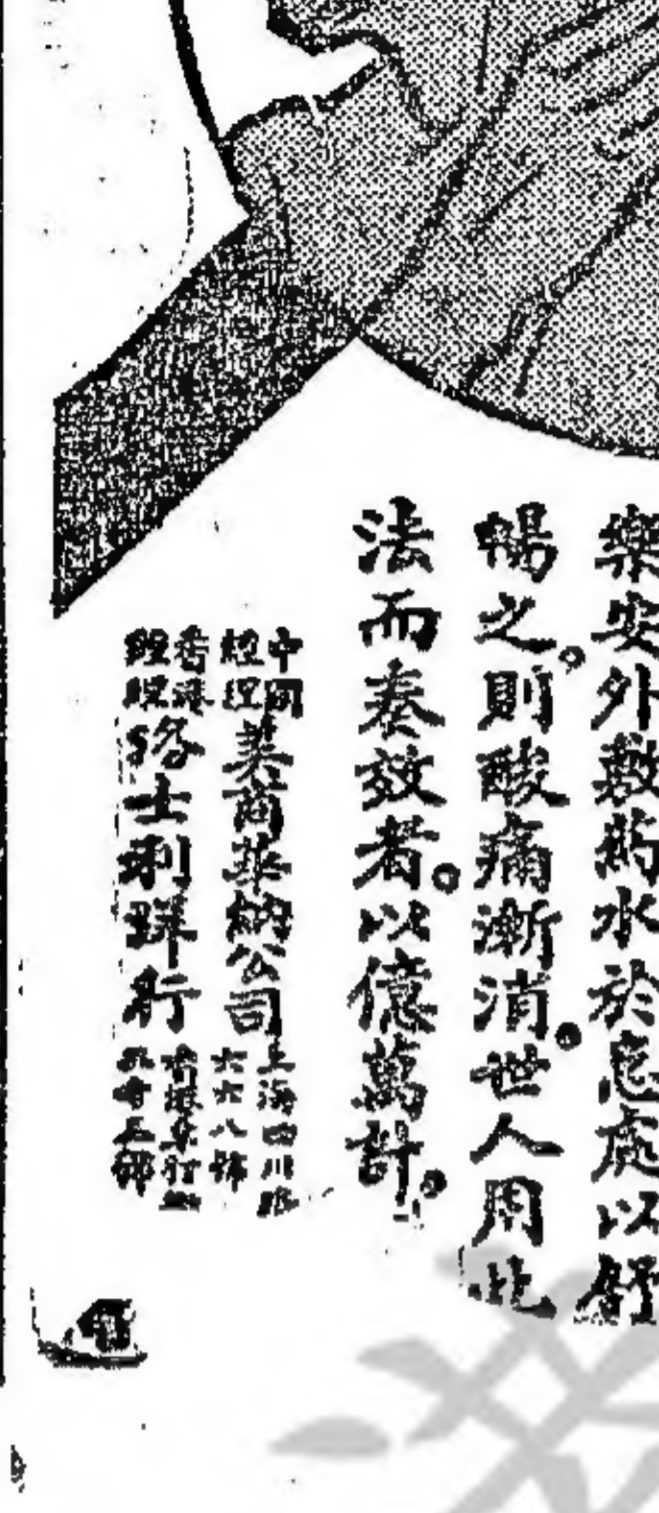 樂安外敷药水於患處以舒
暢之。則酸痛漸消。世人用此
法而奏效者。以億萬計。
中國經理 美商華納公司 上海四川路六六八號
香港經理 洛士利洋行 香港